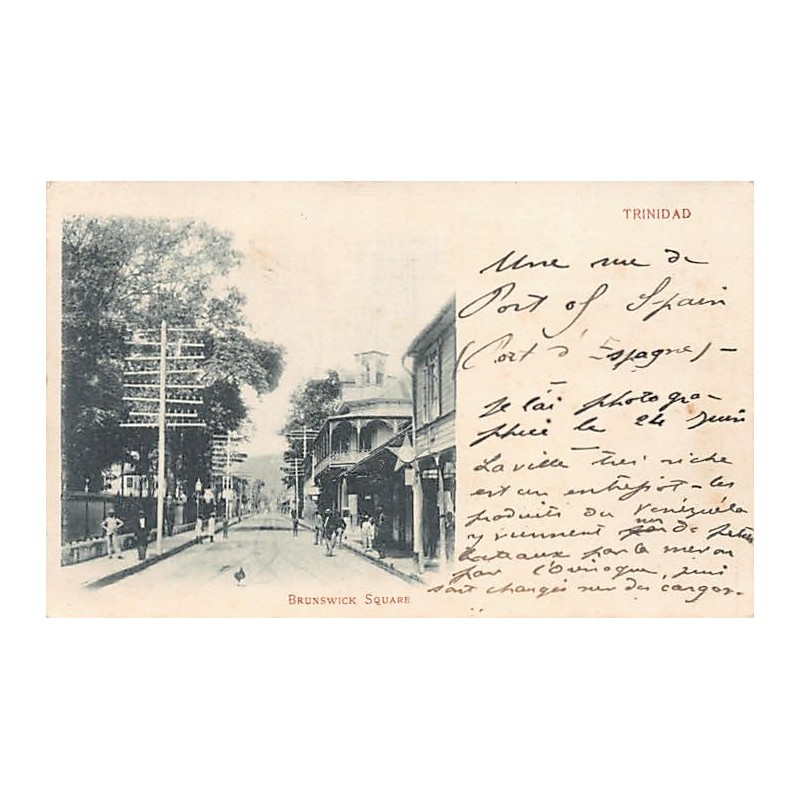 TRINIDAD
Une rue de
Port of Spain
(Port d'Espagne) —
Je l'ai photogra-
phiée le 24 Juin
La ville très riche
est un entrepôt - les
produits du Vénézuéla
y viennent sur de petits
bateaux par la mer ou
par l'Orénoque, puis
sont chargés sur des cargos.
BRUNSWICK SQUARE